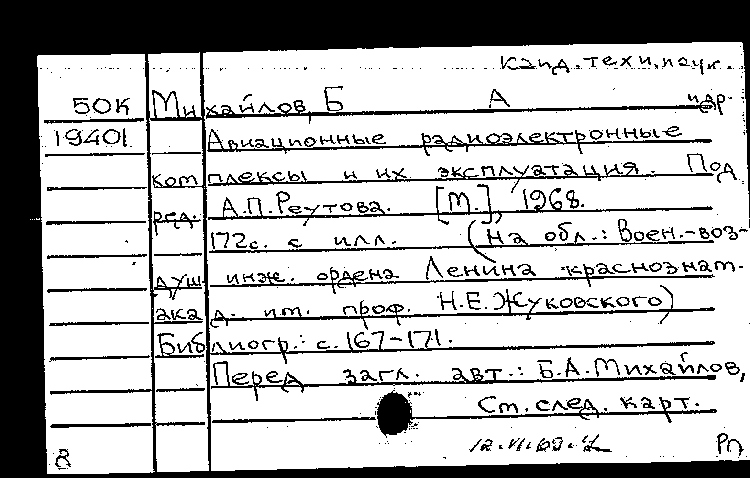 канд. техн. наук.
50К Михайлов, Б А и др.
19401 Авиационные радиоэлектронные
комплексы и их эксплуатация. Под
ред. А.П.Реутова. [М.], 1968.
172с. с илл. (На обл.: Воен.-воз-
душ инж. ордена Ленина краснознам.
акад. им. проф. Н.Е.Жуковского)
Библиогр.: с.167-171.
Перед загл. авт.: Б.А.Михайлов,
См.след. карт.
8 Рп